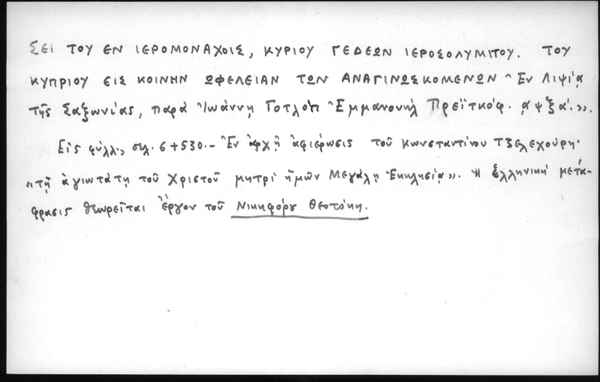 ΣΕΙ ΤΟΥ ΕΝ ΙΕΡΟΜΟΝΑΧΟΙΣ, ΚΥΡΙΟΥ ΓΕΔΕΩΝ ΙΕΡΟΣΟΛΥΜΙΤΟΥ. ΤΟΥ
ΚΥΠΡΙΟΥ ΕΙΣ ΚΟΙΝΗΝ ΩΦΕΛΕΙΑΝ ΤΩΝ ΑΝΑΓΙΝΩΣΚΟΜΕΝΩΝ Ἐν Λιψίᾳ
τῆς Σαξωνίας, παρὰ Ἰωάννῃ Γοτλὸπ Ἐμμανουὴλ Πρεϊτκόφ. αψξα.».
Εἰς φύλλ., σελ. 6+530.- Ἐν ἀρχῇ ἀφιέρωσις τοῦ Κωνσταντίνου Τζελεχούρη·
«τῇ ἁγιωτάτῃ τοῦ Χριστοῦ μητρὶ ἡμῶν Μεγάλῃ Ἐκκλησίᾳ». Ἡ ἑλληνικὴ μετά-
φρασις θεωρεῖται ἔργον τοῦ Νικηφόρου Θεοτόκη.